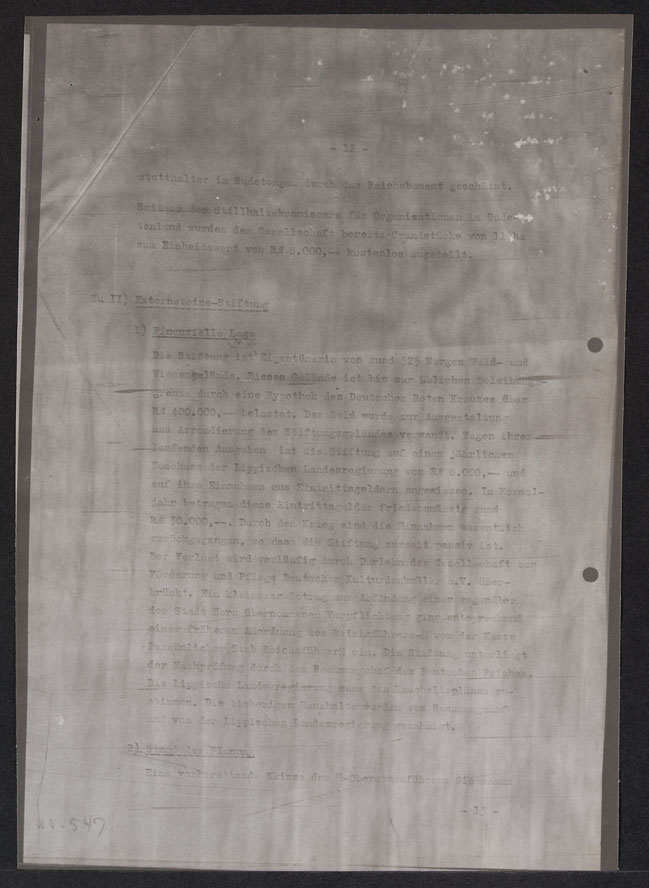 - 12 -
statthalter im Sudetengau durch das Reichsbauamt geschätzt.
Seitens des Stillhaltekommissars für Organisationen im Sude-
tenland wurden der Gesellschaft bereits Grundstücke von 13 ha
zum Einheitswert von RM 8.000,-- kostenlos zugeteilt.
Zu II) Externsteine-Stiftung
1) Finanzielle Lage
Die Stiftung ist Eigentümerin von rund 525 Morgen Wald- und
Wiesengelände. Dieses Gelände ist bis zur üblichen Beleihungs-
grenze durch eine Hypothek des Deutschen Roten Kreuzes über
RM 400.000,-- belastet. Das Geld wurde zur Ausgestaltung
und Arrondierung des Stiftungsgeländes verwandt. Wegen ihrer
laufenden Ausgaben ist die Stiftung auf einen jährlichen
Zuschuss der Lippischen Landesregierung von RM 8.000,-- und
auf ihre Einnahmen aus Eintrittsgeldern angewiesen. Im Normal-
jahr betrugen diese Eintrittsgelder friedensmässig rund
RM 30.000,--. Durch den Krieg sind die Einnahmen wesentlich
zurückgegangen, so dass die Stiftung zurzeit passiv ist.
Der Verlust wird vorläufig durch Darlehn der Gesellschaft zur
Förderung und Pflege Deutscher Kulturdenkmäler e.V. über-
brückt. Ein kleinerer Betrag zur Abfindung einer gegenüber
der Stadt Horn übernommenen Verpflichtung ging entsprechend
einer früheren Anordnung des Reichsführers-SS von der Kasse
Persönlicher Stab ReichsführerSS ein. Die Stiftung unterliegt
der Nachprüfung durch den Rechnungshof des Deutschen Reiches.
Die Lippische Landesregierung muss den Haushaltsplänen zu-
stimmen. Die bisherigen Haushalte wurden vom Rechnungshof
und von der Lippischen Landesregierung genehmigt.
2) Stand der Planung
Eine vorbereitende Skizze des SS-Obersturmführers
- 13 -
547